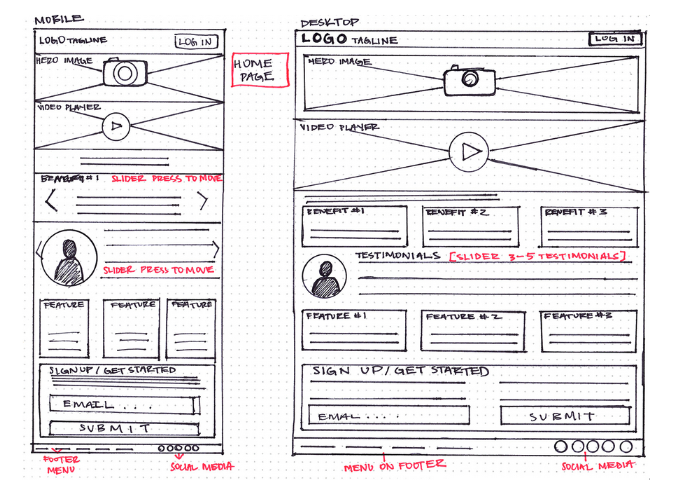 MOBILE
LOGO TAGLINE
LOG IN
HERO IMAGE
VIDEO PLAYER
#1 SLIDER PRESS TO MOVE
SLIDER PRESS TO MOVE
FEATURE
FEATURE
FEATURE
SIGNUP/GET STARTED
EMAIL . . .
SUBMIT
FOOTER
MENU
SOCIAL MEDIA
HOME
PAGE
DESKTOP
LOGO TAGLINE
LOG IN
HERO IMAGE
VIDEO PLAYER
BENEFIT #1
BENEFIT #2
BENEFIT #3
TESTIMONIALS [SLIDER 3-5 TESTIMONIALS]
FEATURE #1
FEATURE #2
FEATURE #3
SIGN UP/GET STARTED
EMAL . . . .
SUBMIT
MENU ON FOOTER
SOCIAL MEDIA